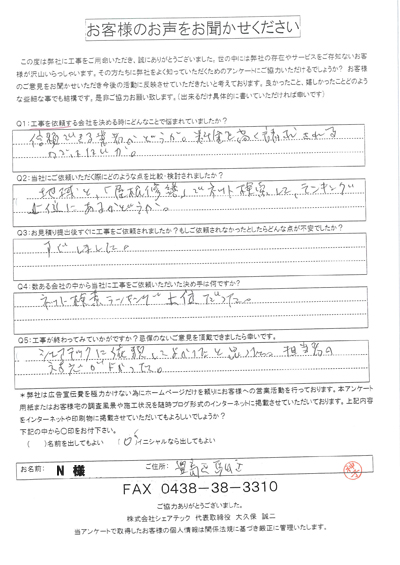 お客様のお声をお聞かせください
この度は弊社に工事をご用命いただき、誠にありがとうございました。世の中には弊社の存在やサービスをご存知ないお客
様が沢山いらっしゃいます。その方たちに弊社をよく知っていただくためのアンケートにご協力いただけるでしょうか?お客様
のご意見をお聞かせいただき今後の活動に反映させていただきたいと考えております。良かったこと、嬉しかったことどのよう
な些細な事でも結構です。是非ご協力お願い致します。(出来るだけ具体的に書いていただければ幸いです)
Q1:工事を依頼する会社を決める時にどんなことで悩まれていましたか?
信頼できる業者かどうか。料金を高く請求される
のではないか。
Q2:当社にご依頼いただく際にどのような点を比較・検討されましたか?
地域と、「屋根修繕」でネット検索して、ランキング
上位にあるかどうか。
Q3:お見積り提出後すぐに工事をご依頼されましたか?もしご依頼されなかったとしたらどんな点が不安でしたか?
すぐしました。
Q4:数ある会社の中から当社に工事をご依頼いただいた決め手は何ですか?
ネット検索ランキングで上位だった。
Q5:工事が終わってみていかがですか?忌憚のないご意見を頂戴できましたら幸いです。
シェアテックに依頼してよかったと思った。担当者の
対応がよかった。
*弊社は広告宣伝費を極力かけない為にホームページだけを頼りにお客様への営業活動を行っております。本アンケート
用紙またはお客様宅の調査風景や施工状況を随時ブログ形式のインターネットに掲載させていただいております。上記内容
をインターネットや印刷物に掲載させていただいてもよろしいでしょうか?
下記の中から○印をお付下さい。
( )名前を出してもよい (○)イニシャルなら出してもよい
お名前: N 様 ご住所:
FAX 0438-38-3310
ご協力ありがとうございました。
株式会社シェアテック 代表取締役 大久保 誠二
当アンケートで取得したお客様の個人情報は関係法規に基づき厳正に管理いたします。